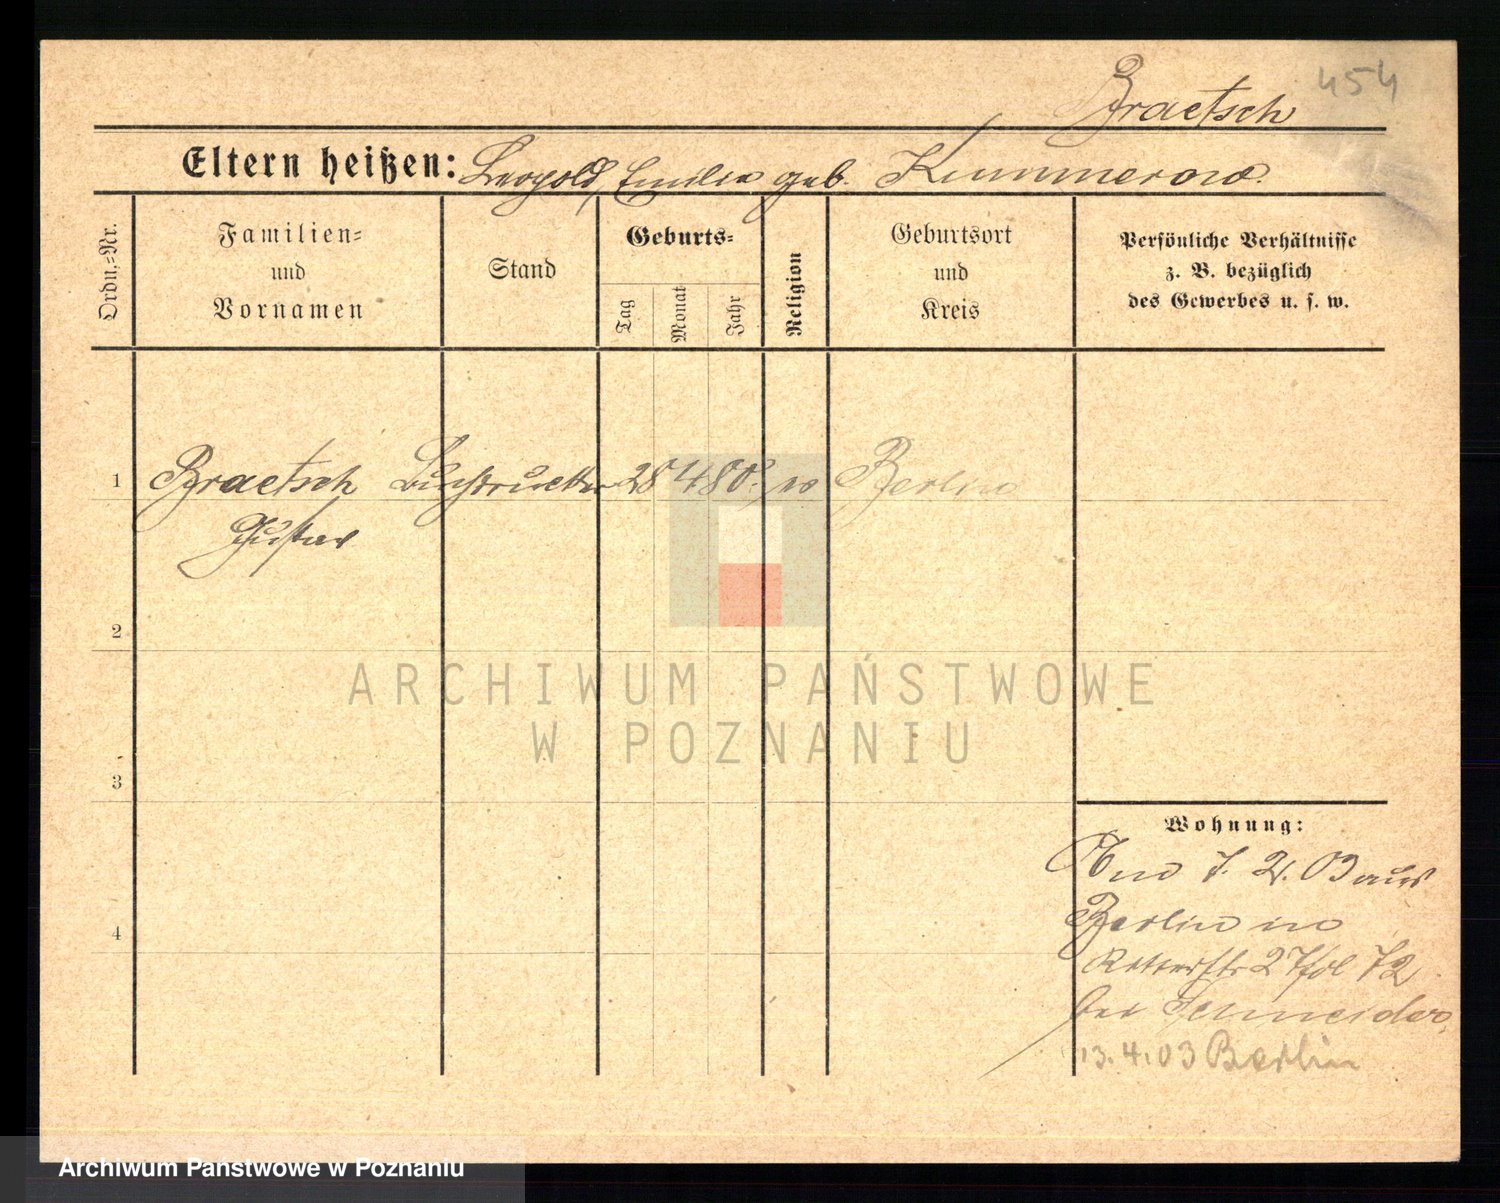 454
Braetsch
Eltern heißen: Leopold, Emilie geb. Kummerow.
Ordn.-Nr.
Familien-
und
Vornamen
Stand
Geburts-
Tag
Monat
Jahr
Religion
Geburtsort
und
Kreis
Persönliche Verhältnisse
z. B. bezüglich
des Gewerbes u. s. w.
1 Braetsch Buchdrucker 28 4 80. Berlin
Gustav
2
ARCHIWUM PAŃSTWOWE
W POZNANIU
3
Wohnung:
7. 2. 03 aus
4
Berlin in
72
bei Schneider,
13.4.03 Berlin
Archiwum Państwowe w Poznaniu